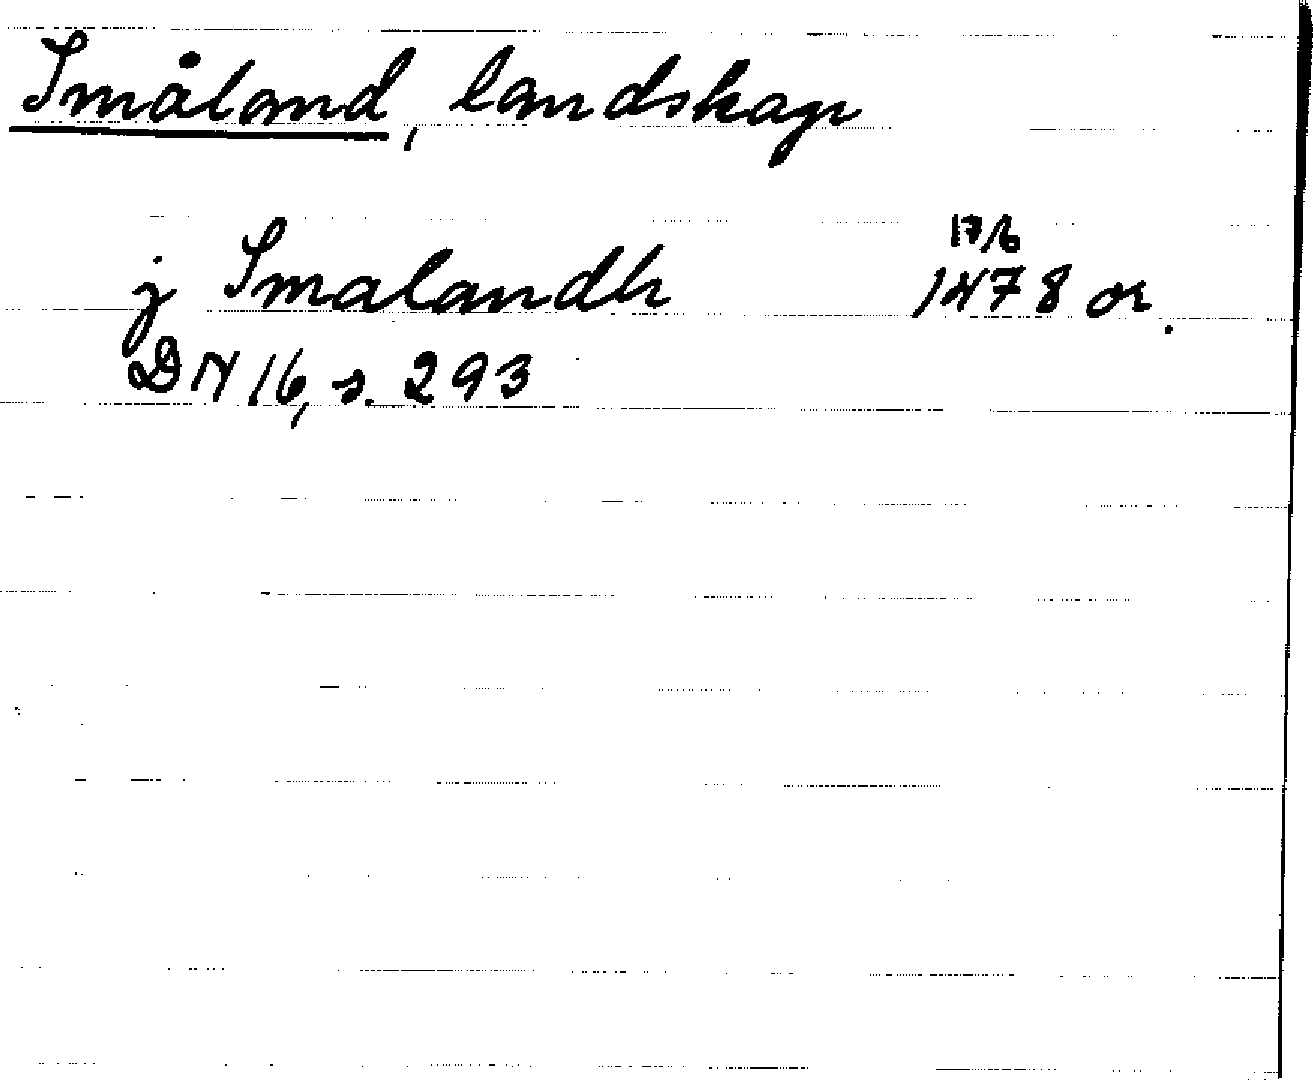 Småland, landskap
j Smalandh 17/6 1478 or.
DN 16, s. 293